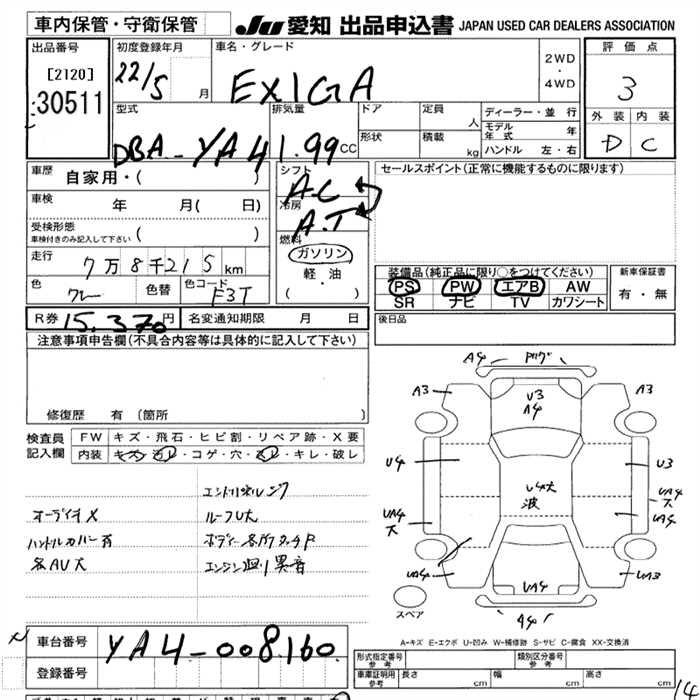 車内保管・守衛保管
JU 愛知 出品申込書 JAPAN USED CAR DEALERS ASSOCIATION
出品番号
[2120]
30511
初度登録年月
22/5 月
車名・グレード
EXIGA
2WD
・
4WD
評価点
3
外装 内装
D C
型式
DBA-YA4
排気量
1.99 CC
ドア
形状
定員
人
積載
kg
ディーラー・並行
モデル年式 年
ハンドル 左・右
車歴
自家用・( )
車検
年 月( 日)
受検形態
車検付きのみ記入して下さい ( )
走行
7万8千215km
色
グレー
色替
色コード
F3T
シフト
A.C
冷房
A.T
燃料
ガソリン
軽・油
( )
セールスポイント(正常に機能するものに限ります)
装備品(純正品に限り○をつけてください)
PS PW エアB AW
SR ナビ TV カワシート
新車保証書
有・無
後日品
R券 15,370円
名変通知期限 月 日
注意事項申告欄(不具合内容等は具体的に記入して下さい)
修復歴 有(箇所
検査員記入欄
FW キズ・飛石・ヒビ割・リペア跡・X要
内装 キズ・汚レ・コゲ・穴・スレ・キレ・破レ
オーディオX
ハンドルカバー有
各AU大
ルーフU大
ボディー各所タッチP
エンジン廻り異音
A4
A3
U3
A4
A3
U4
U4大
波
U3
UA4
大
UA4
大
UA4
UA4
UA4
UA3
A4
スペア
A-キズ E-エクボ U-凹み W-補修跡 S-サビ C-腐食 XX-交換済
車台番号
YA4-008160
登録番号
形式指定番号
参考
類別区分番号
参考
車庫証明用
参考
長さ cm 幅 cm 高さ cm
14